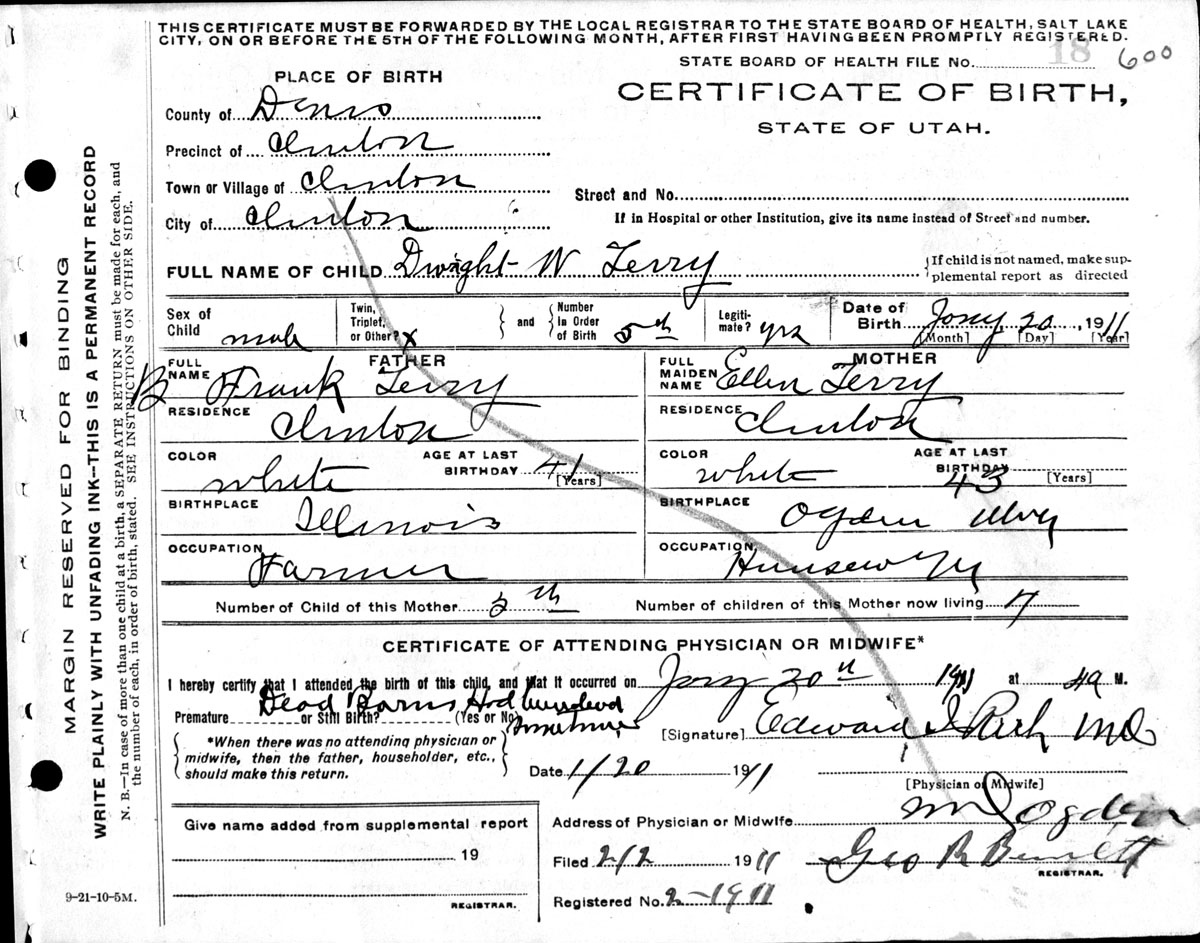 THIS CERTIFICATE MUST BE FORWARDED BY THE LOCAL REGISTRAR TO THE STATE BOARD OF HEALTH, SALT LAKE
CITY, ON OR BEFORE THE 5TH OF THE FOLLOWING MONTH, AFTER FIRST HAVING BEEN PROMPTLY REGISTERED.
STATE BOARD OF HEALTH FILE No. 18 600
PLACE OF BIRTH
CERTIFICATE OF BIRTH,
STATE OF UTAH.
County of Davis
Precinct of Clinton
Town or Village of Clinton
Street and No.
City of Clinton
If in Hospital or other Institution, give its name instead of Street and number.
FULL NAME OF CHILD Dwight W Terry
{If child is not named, make sup-
plemental report as directed
Sex of Child male
Twin, Triplet, or Other? x
and
Number in Order of Birth 5th
Legiti-mate? yes
Date of Birth Jany 20, 1911
[Month] [Day] [Year]
FATHER
FULL NAME B Frank Terry
RESIDENCE Clinton
COLOR white
AGE AT LAST BIRTHDAY 41 [Years]
BIRTHPLACE Illinois
OCCUPATION Farmer
MOTHER
FULL MAIDEN NAME Ellen Terry
RESIDENCE Clinton
COLOR white
AGE AT LAST BIRTHDAY 43 [Years]
BIRTHPLACE Ogden
OCCUPATION
Number of Child of this Mother 5th
Number of children of this Mother now living 4
CERTIFICATE OF ATTENDING PHYSICIAN OR MIDWIFE*
I hereby certify that I attended the birth of this child, and that it occurred on Jany 20th 1911 at 4a M.
Dead Born Had been dead sometime
Premature or Still Birth? (Yes or No)
[Signature] Edward I Rich MD
{*When there was no attending physician or
midwife, then the father, householder, etc.,
should make this return.}
Date 1/20 1911
[Physician or Midwife]
Give name added from supplemental report
19
REGISTRAR.
Address of Physician or Midwife Ogden
Filed 2/2 1911
Geo R Bennett
REGISTRAR.
Registered No. 2-1911
9-21-10-5M.
MARGIN RESERVED FOR BINDING
WRITE PLAINLY WITH UNFADING INK--THIS IS A PERMANENT RECORD
N. B.--In case of more than one child at a birth, a SEPARATE RETURN must be made for each, and
the number of each, in order of birth, stated. SEE INSTRUCTIONS ON OTHER SIDE.